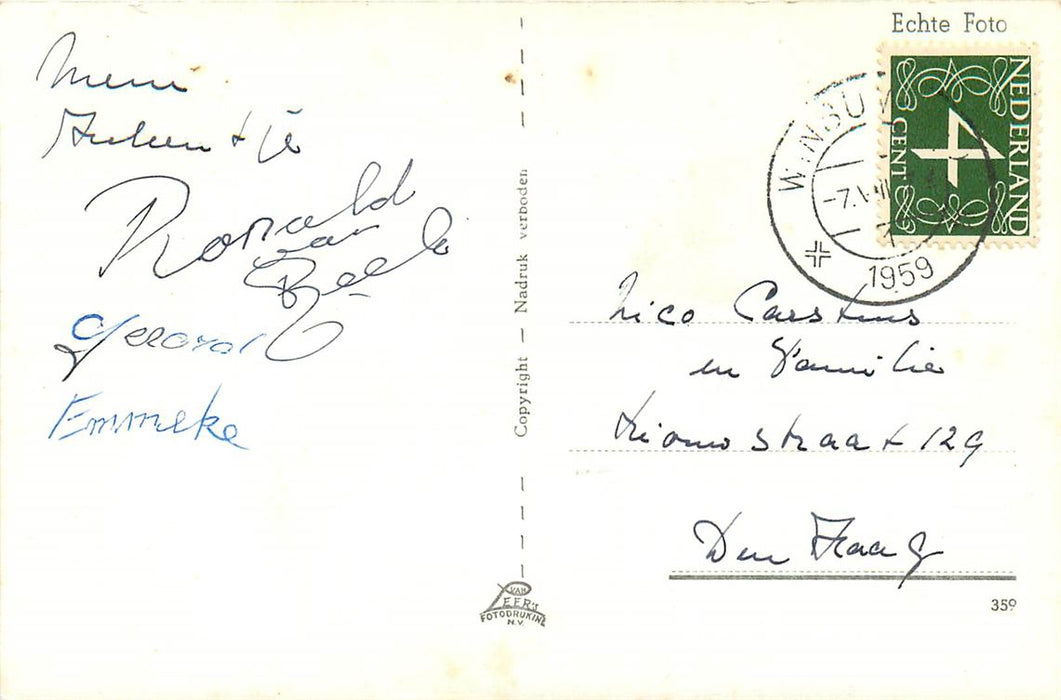 Echte Foto
NEDERLAND
4
CENT
1959
Ronald
van
Beek
Gerard
Emmeke
Copyright — Nadruk verboden
Nico Carstens
en Familie
straat 129
Den Haag
VAN
LEER'S
FOTODRUKIND.
N.V.
359